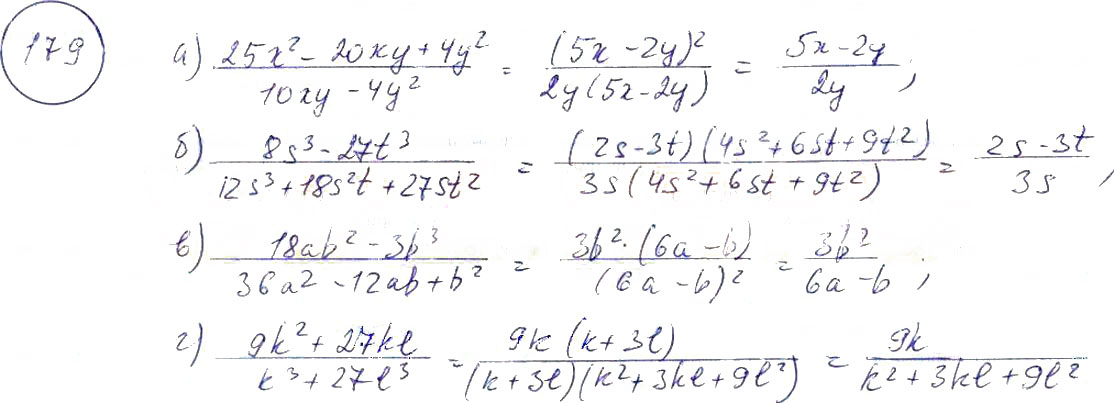 179
а) (25x² - 20xy + 4y²)/(10xy - 4y²) = (5x - 2y)²/(2y(5x - 2y)) = (5x - 2y)/(2y);
б) (8s³ - 27t³)/(12s³ + 18s²t + 27st²) = ((2s - 3t)(4s² + 6st + 9t²))/(3s(4s² + 6st + 9t²)) = (2s - 3t)/(3s),
в) (18ab² - 3b³)/(36a² - 12ab + b²) = (3b² · (6a - b))/((6a - b)²) = (3b²)/(6a - b);
г) (9k² + 27kl)/(k³ + 27l³) = (9k(k + 3l))/((k + 3l)(k² + 3kl + 9l²)) = (9k)/(k² + 3kl + 9l²)